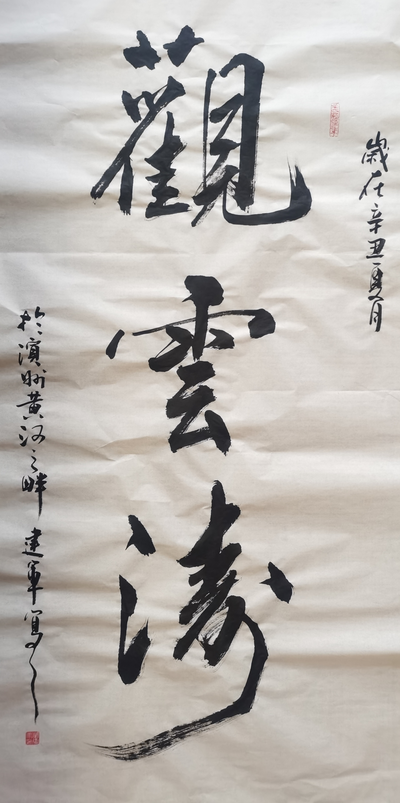 歲在辛丑夏月
觀雲濤
於濱州黃河之畔 建軍寫